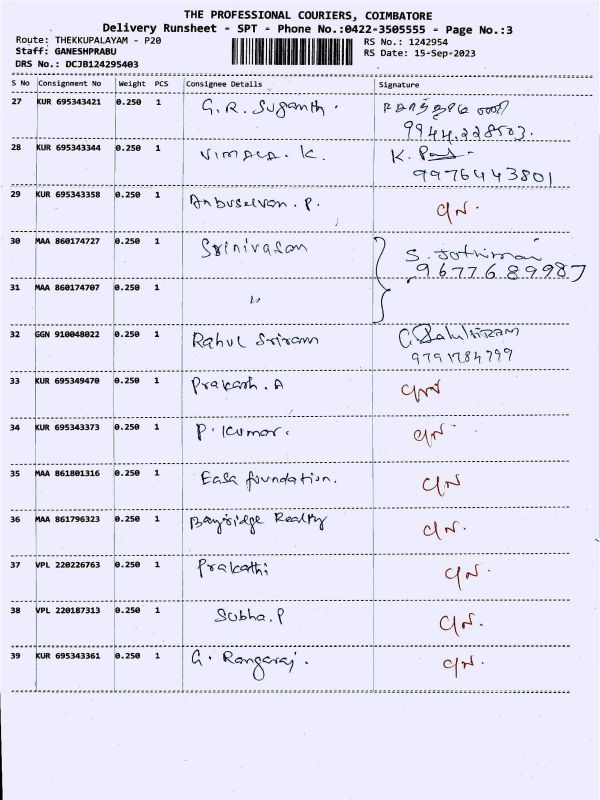 THE PROFESSIONAL COURIERS, COIMBATORE
Delivery Runsheet - SPT - Phone No.:0422-3505555 - Page No.:3
Route: THEKKUPALAYAM - P20 RS No.: 1242954
Staff: GANESHPRABU RS Date: 15-Sep-2023
DRS No.: DCJB124295403
S No Consignment No Weight PCS Consignee Details Signature
27 KUR 695343421 0.250 1 G.R. Suganth.
28 KUR 695343344 0.250 1 Vimala. K. K.
9976443801
29 KUR 695343358 0.250 1 Anbuselvan. P. C/N.
30 MAA 860174727 0.250 1 Srinivasan S.
9677689987
31 MAA 860174707 0.250 1 "
32 GGN 910048022 0.250 1 Rahul Sriram
9791784799
33 KUR 695349470 0.250 1 Prakash. A C/N
34 KUR 695343373 0.250 1 P. Kumar. C/N.
35 MAA 861801316 0.250 1 Easa foundation. C/N
36 MAA 861796323 0.250 1 Bayridge Realty C/N.
37 VPL 220226763 0.250 1 Prakathi C/N.
38 VPL 220187313 0.250 1 Subha. P C/N.
39 KUR 695343361 0.250 1 G. Rangaraj. C/N.